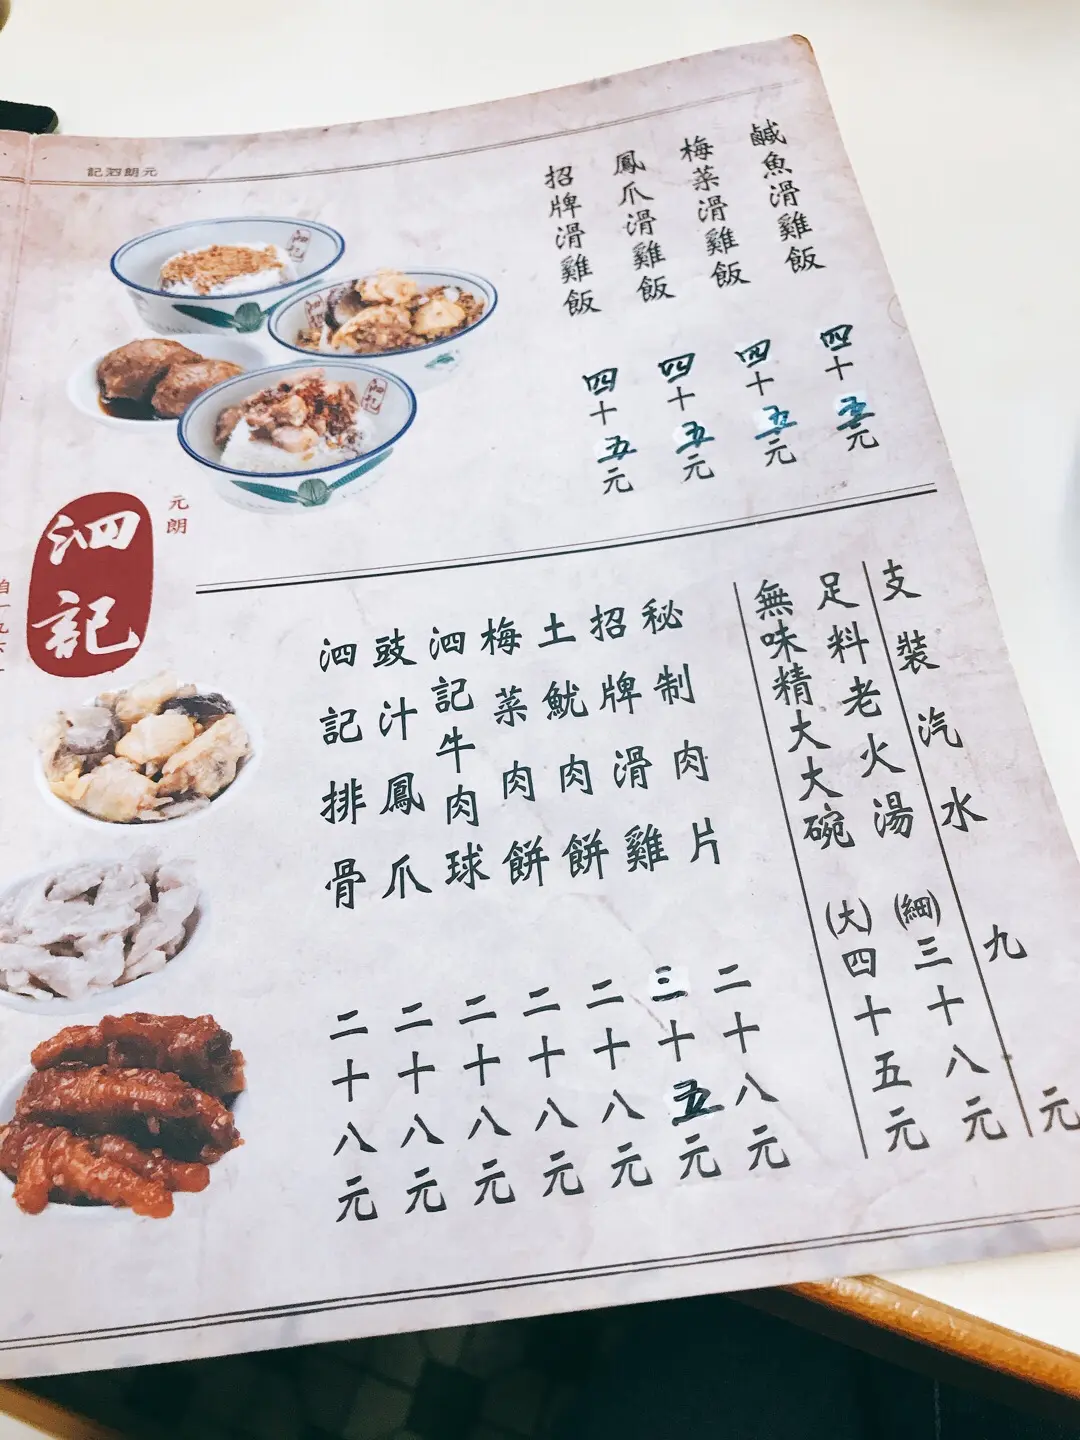 元朗泗記
鹹魚滑雞飯 四十五元
梅菜滑雞飯 四十五元
鳳爪滑雞飯 四十五元
招牌滑雞飯 四十五元
元朗
泗記
支裝汽水 九元
足料老火湯 (細)三十八元
無味精大大碗 (大)四十五元
秘制肉片 二十八元
招牌滑雞 三十五元
土魷肉餅 二十八元
梅菜肉餅 二十八元
泗記牛肉球 二十八元
豉汁鳳爪 二十八元
泗記排骨 二十八元